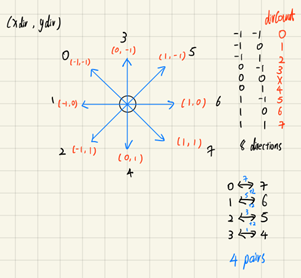 (xdir, ydir)
3
0 (-1,-1) (0,-1) (1,-1) 5
1 (-1,0) (1,0) 6
2 (-1,1) (0,1) (1,1) 7
4
dircount
-1 -1 0
-1 0 1
-1 1 2
0 -1 3
0 0 X
0 1 4
1 -1 5
1 0 6
1 1 7
8 directions
7
0 ↔ 7
5
1 ↔ 6
3
2 ↔ 5
1
3 ↔ 4
4 pairs